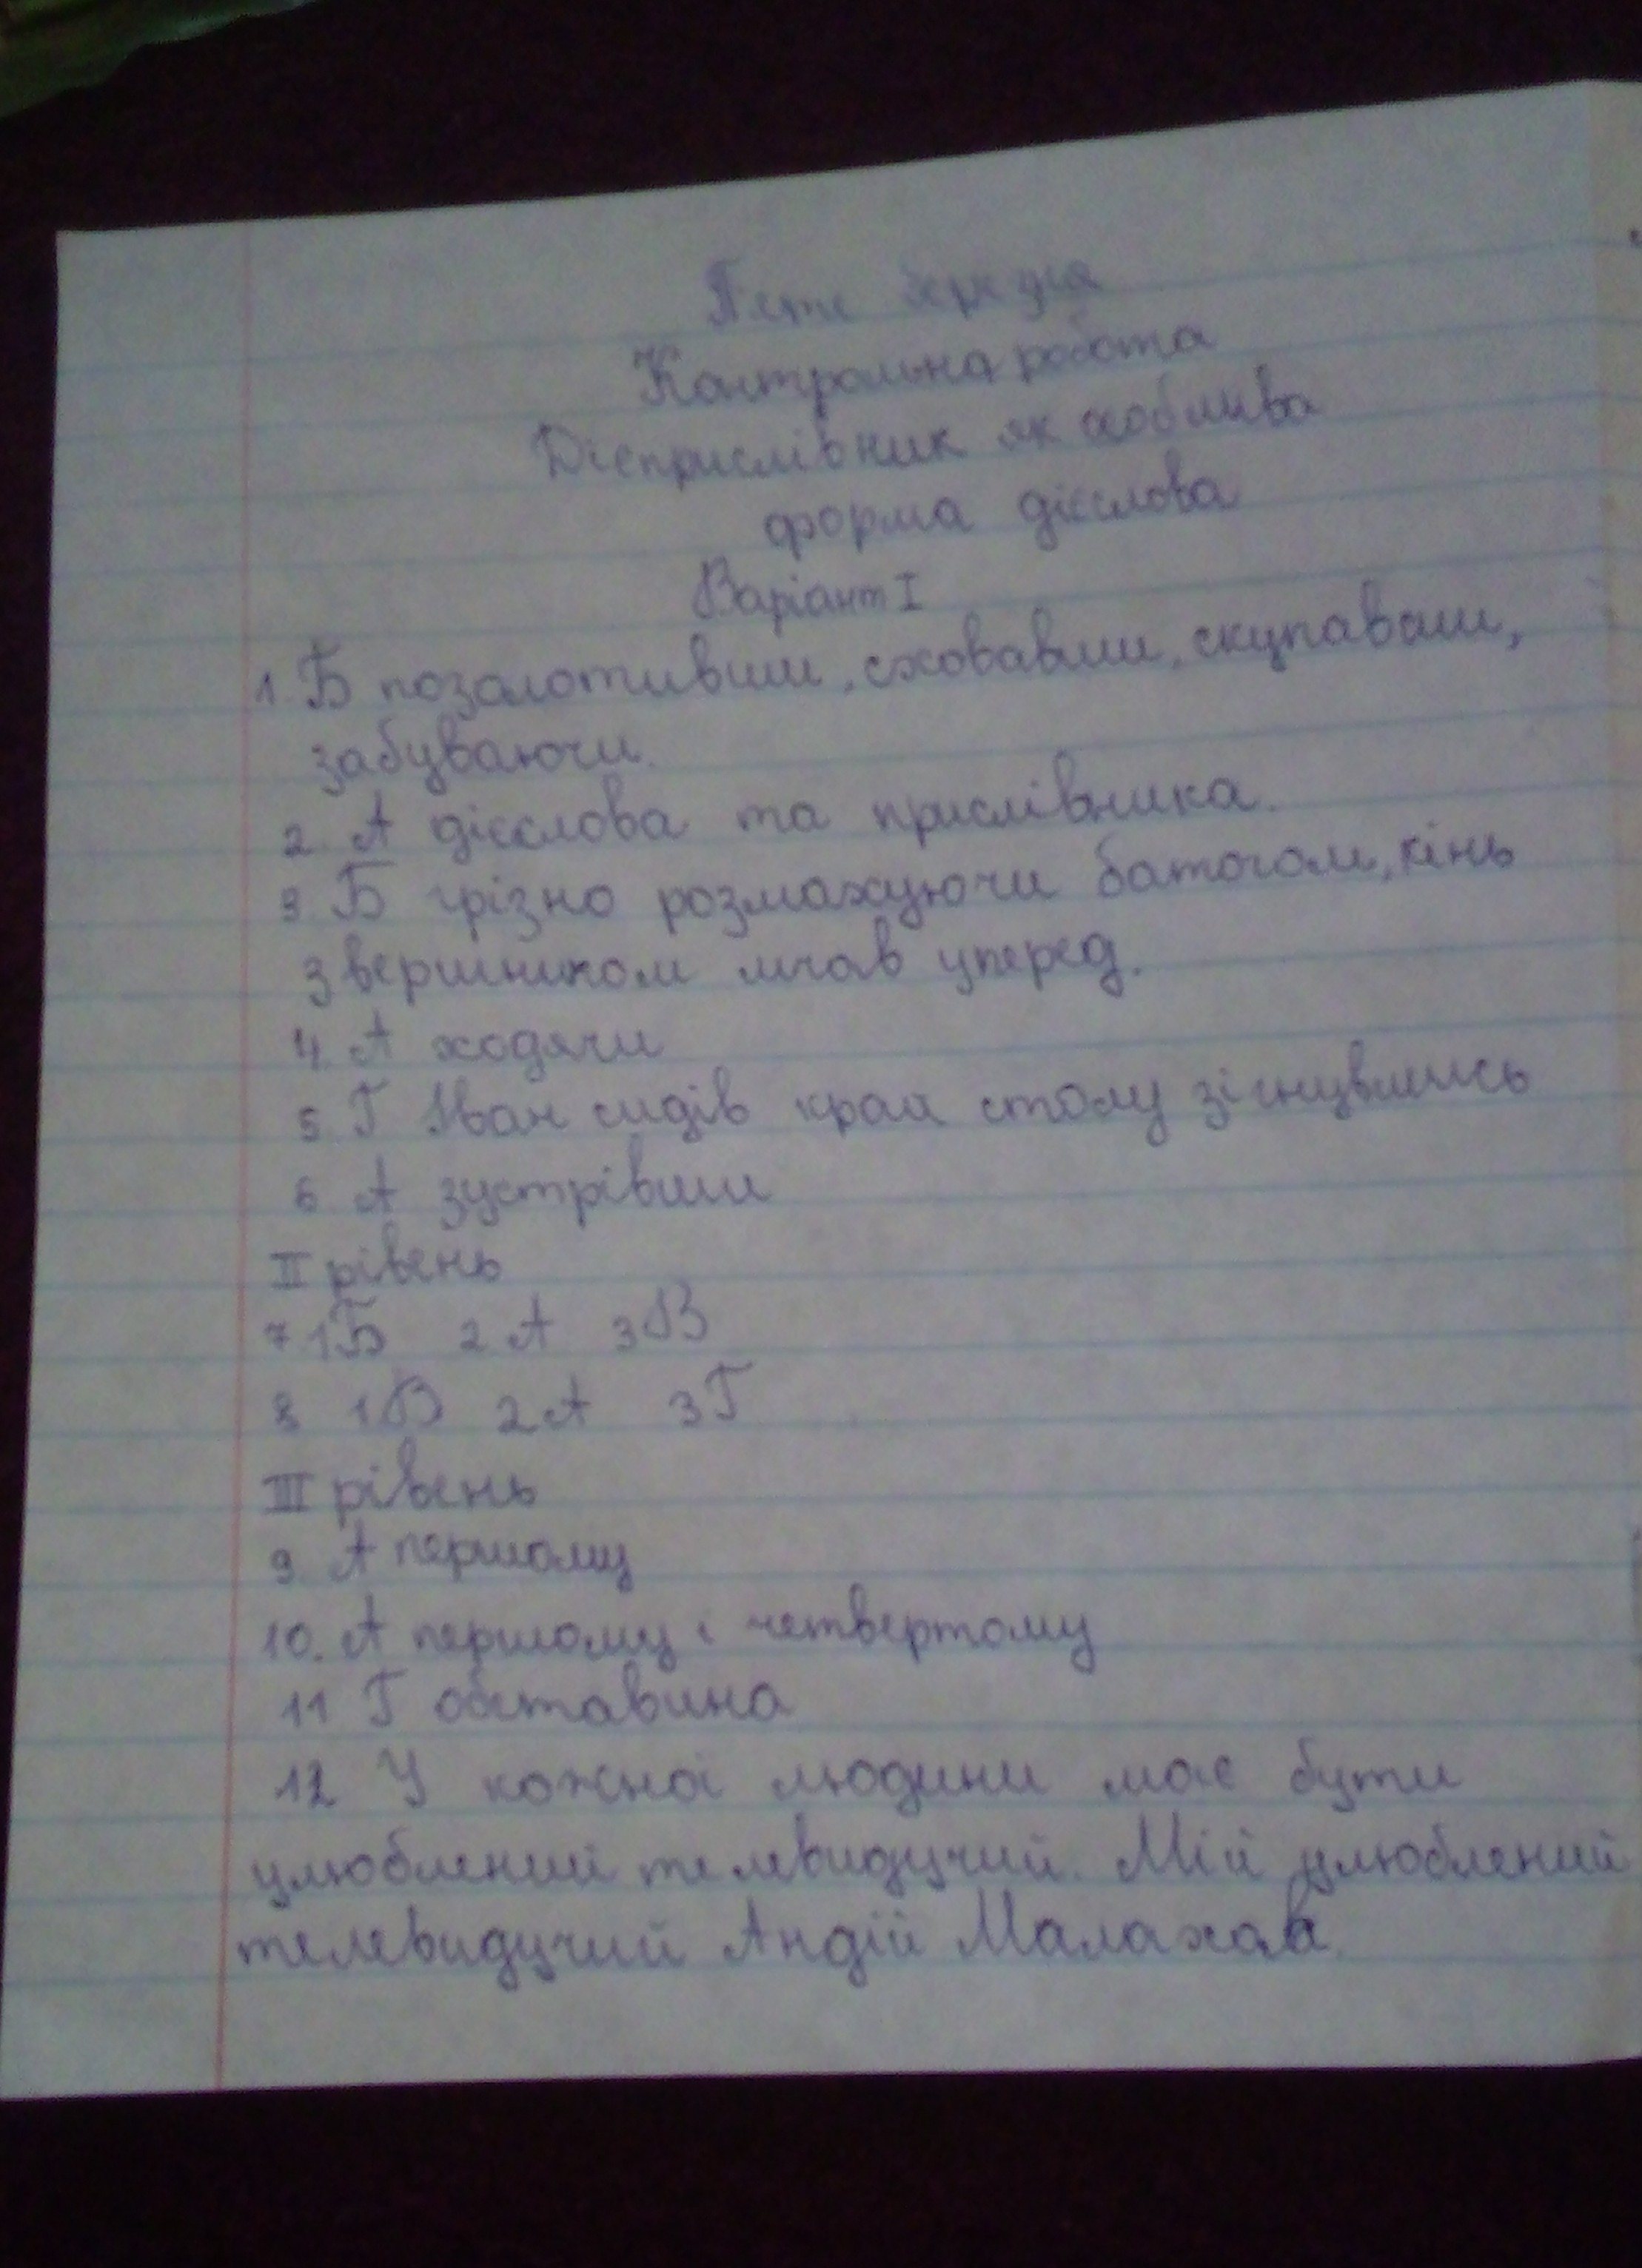 Контрольна робота
Дієприслівник як особлива
форма дієслова
Варіант I
1. Б позолотивши, сховавши, скупавши,
забуваючи.
2. А дієслова та прислівника.
3. Б грізно розмахуючи батогом, кінь
з вершником мчав уперед.
4. А ходячи
5. Г Іван сидів край столу зігнувшись
6. А зустрівши
II рівень
7. 1Б 2А 3В
8 1В 2А 3Г
III рівень
9. А першому
10. А першому і четвертому
11 Г обставина
12 У кожної людини має бути
улюблений телевидучий. Мій улюблений
телевидучий Андій Малахов.